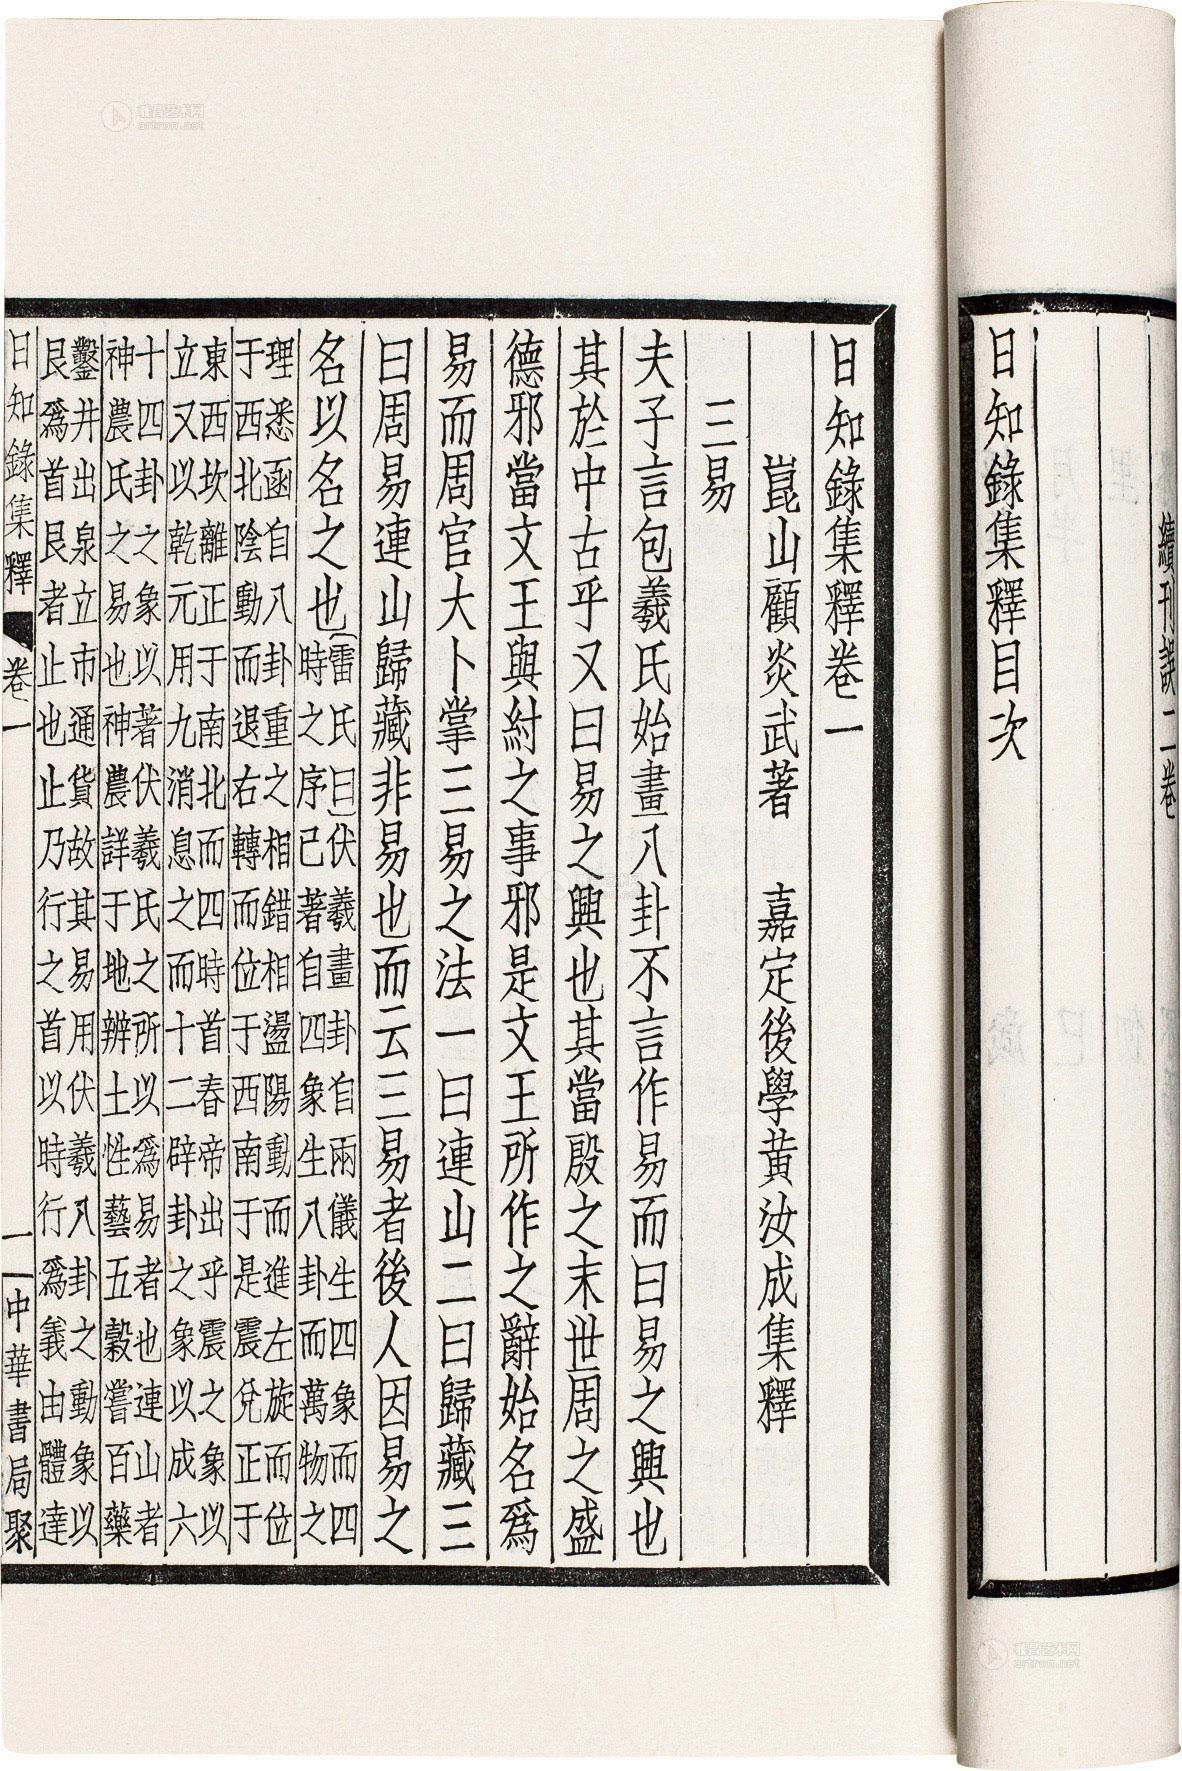 續刊誤二卷
日知錄集釋目次
日知錄集釋卷一
崑山顧炎武著　嘉定後學黃汝成集釋
三易
夫子言包羲氏始畫八卦不言作易而曰易之興也
其於中古乎又曰易之興也其當殷之末世周之盛
德邪當文王與紂之事邪是文王所作之辭始名爲
易而周官大卜掌三易之法一曰連山二曰歸藏三
曰周易連山歸藏非易也而云三易者後人因易之
名以名之也
〔雷氏曰〕伏羲畫卦自兩儀生四象而四
時之序已著自四象生八卦而萬物之
理悉函自八卦重之相錯相盪陽動而進左旋而位
于西北陰動而退右轉而位于西南于是震兌正于
東西坎離正于南北而四時首春帝出乎震之象以
立又以乾元用九消息之而十二辟卦之象以成六
十四卦之象以著伏羲氏之所以爲易者也連山者
神農氏之易也神農詳于地辨土性藝五穀嘗百藥
鑿井出泉立市通貨故其易用伏羲八卦之動象以
艮爲首艮者止也止乃行之首以時行爲義由體達
日知錄集釋　卷一　一　中華書局聚
雅昌艺术网
artron.net
雅昌艺术网
artron.net